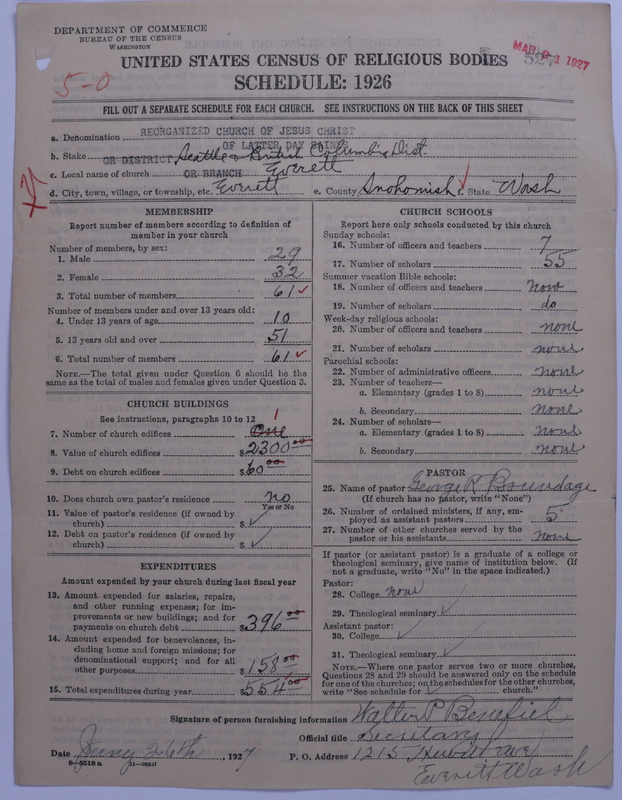 DEPARTMENT OF COMMERCE
BUREAU OF THE CENSUS
WASHINGTON
MAR 1927
UNITED STATES CENSUS OF RELIGIOUS BODIES
5-0
SCHEDULE: 1926
FILL OUT A SEPARATE SCHEDULE FOR EACH CHURCH. SEE INSTRUCTIONS ON THE BACK OF THIS SHEET
a. Denomination REORGANIZED CHURCH OF JESUS CHRIST
OF LATTER DAY SAINTS
b. Stake OR DISTRICT Seattle & British Columbia Dist.
c. Local name of church OR BRANCH Everett
d. City, town, village, or township, etc. Everett e. County Snohomish f. State Wash
MEMBERSHIP
Report number of members according to definition of
member in your church
Number of members, by sex:
1. Male 29
2. Female 32
3. Total number of members 61
Number of members under and over 13 years old:
4. Under 13 years of age 10
5. 13 years old and over 51
6. Total number of members 61
NOTE.—The total given under Question 6 should be
same as the total of males and females given under Question 3.
CHURCH BUILDINGS
See instructions, paragraphs 10 to 12
1
7. Number of church edifices One
8. Value of church edifices $2300.00
9. Debt on church edifices $60.00
10. Does church own pastor's residence no
Yes or No
11. Value of pastor's residence (if owned by
church) $
12. Debt on pastor's residence (if owned by
church) $
EXPENDITURES
Amount expended by your church during last fiscal year
13. Amount expended for salaries, repairs,
and other running expenses; for im-
provements or new buildings; and for
payments on church debt $396.00
14. Amount expended for benevolences, in-
cluding home and foreign missions; for
denominational support; and for all
other purposes $158.00
15. Total expenditures during year $554.00
CHURCH SCHOOLS
Report here only schools conducted by this church
Sunday schools:
16. Number of officers and teachers 7
17. Number of scholars 55
Summer vacation Bible schools:
18. Number of officers and teachers none
19. Number of scholars do
Week-day religious schools:
20. Number of officers and teachers none
21. Number of scholars none
Parochial schools:
22. Number of administrative officers none
23. Number of teachers—
a. Elementary (grades 1 to 8) none
b. Secondary none
24. Number of scholars—
a. Elementary (grades 1 to 8) none
b. Secondary none
PASTOR
25. Name of pastor George R Brundage
(If church has no pastor, write "None")
26. Number of ordained ministers, if any, em-
ployed as assistant pastors 5
27. Number of other churches served by the
pastor or his assistants none
If pastor (or assistant pastor) is a graduate of a college or
theological seminary, give name of institution below. (If
not a graduate, write "No" in the space indicated.)
Pastor:
28. College none
29. Theological seminary
Assistant pastor:
30. College
31. Theological seminary
NOTE.—Where one pastor serves two or more churches,
Questions 28 and 29 should be answered only on the schedule
for one of the churches; on the schedules for the other churches,
write "See schedule for church."
Signature of person furnishing information Walter P Benefiel
Official title Secretary
Date 26th, 1927 P. O. Address 1215
8-5518 a
Everett Wash